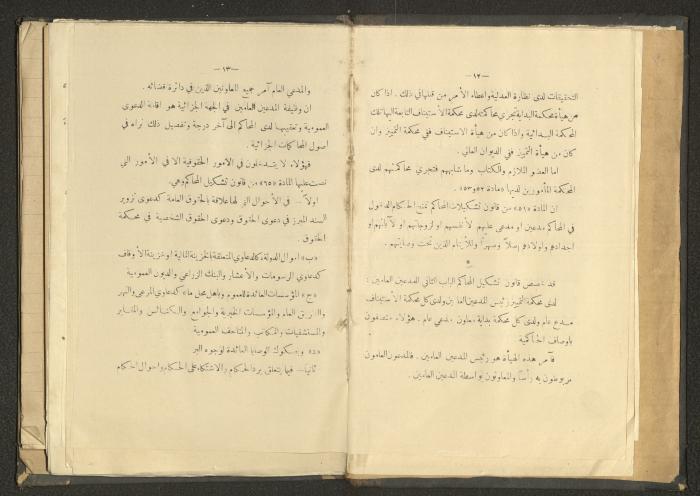 — ١٢ —
التحقيقات لدى نظارة العدلية واعطاء الأمر من قبلها في ذلك . اذا كان
من هيأة محكمة البداية تجري محاكمته لدى محكمة الأستيناف التابعة اليها تلك
المحكمة البدائية واذا كان من هيأة الاستيناف ففي محكمة التمييز وان
كان من هيأة التمييز ففي الديوان العالي .
اما العضو الملازم والكتاب وما شابههم فتجري محاكمتهم لدى
المحكمة المأمورين لديها «مادة ٥٢ و٥٣» .
ان المادة «٥١» من قانون تشكيلات المحاكم تمنع الحكام الدخول
في المحاكم مدعين او مدعى عليهم لأنفسهم او لزوجاتهم او لآبائهم او
اجدادهم واولادهم اصلاً وصهراً وللأيتام الذين تحت وصايتهم .
*
قد خصص قانون تشكيل المحاكم الباب الثاني للمدعين العامين :
لدى محكمة التمييز رئيس المدعين العامين ولدى كل محكمة الأستيناف
مدع عام ولدى كل محكمة بداية معاون مدعي عام . هؤلاء متصفون
باوصاف الحاكمية
فآمر هذه الهيأة هو رئيس المدعين العامين . فالمدعون العامون
مربوطون به رأساً والمعاونون بواسطة المدعين العامين .
— ١٣ —
والمدعي العام آمر جميع المعاونين الذين في دائرة قضائه .
ان وظيفة المدعين العامين في الجهة الجزائية هو اقامة الدعوى
العمومية وتعقيبها لدى المحاكم الى آخر درجة وتفصيل ذلك نراه في
اصول المحاكمات الجزائية .
فهؤلاء لا يتدخلون في الأمور الحقوقية الا في الأمور التي
نصت عليها المادة «٦٥» من قانون تشكيل المحاكم وهي .
اولاً — في الأحوال التي لها علاقة بالحقوق العامة كدعوى تزوير
السند المبرز في دعوى الحقوق ودعوى الحقوق الشخصية في محكمة
الحقوق .
«ب» اموال الدولة ، كالدعاوي المتعلقة بالخزينة المالية او خزينة الأوقاف
كدعاوي الرسومات والأعشار والبنك الزراعي والديون العمومية
«ج» المؤسسات العائدة للعموم وباهل محل ما كدعاوي المرعى والنهر
والطريق العام والمؤسسات الخيرية والجوامع والكنائس والمقابر
والمستشفيات والمكاتب والمتاحف العمومية
«د» وبصكوك الوصايا العائدة لوجوه البر
ثانياً — فيما يتعلق برد الحكام والاشتكاء على الحكام واحوال احكام